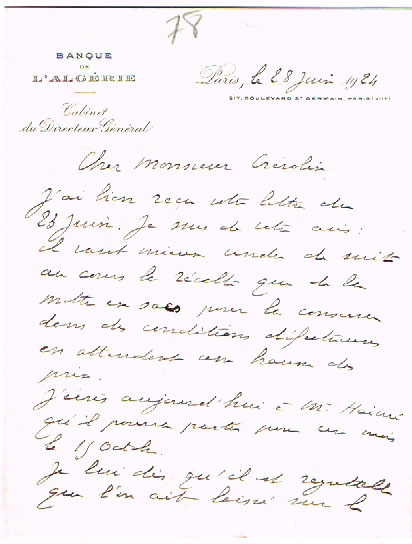 78
BANQUE
DE
L'ALGÉRIE
Cabinet
du Directeur Général
Paris, le 28 Juin 1924
217, BOULEVARD ST GERMAIN, PARIS (VIIe)
Cher Monsieur
J'ai bien reçu votre lettre du
23 Juin. Je suis de votre avis :
il vaut mieux vendre de suite
au cours la récolte que de la
mettre en sacs pour la conserver
dans des conditions défectueuses
en attendant une hausse des
prix.
J'écris aujourd'hui à Mr
qu'il pourra partir pour un mois
le 15 Octob.
Je lui dis qu'il est regrettable
que l'on ait laissé sur le